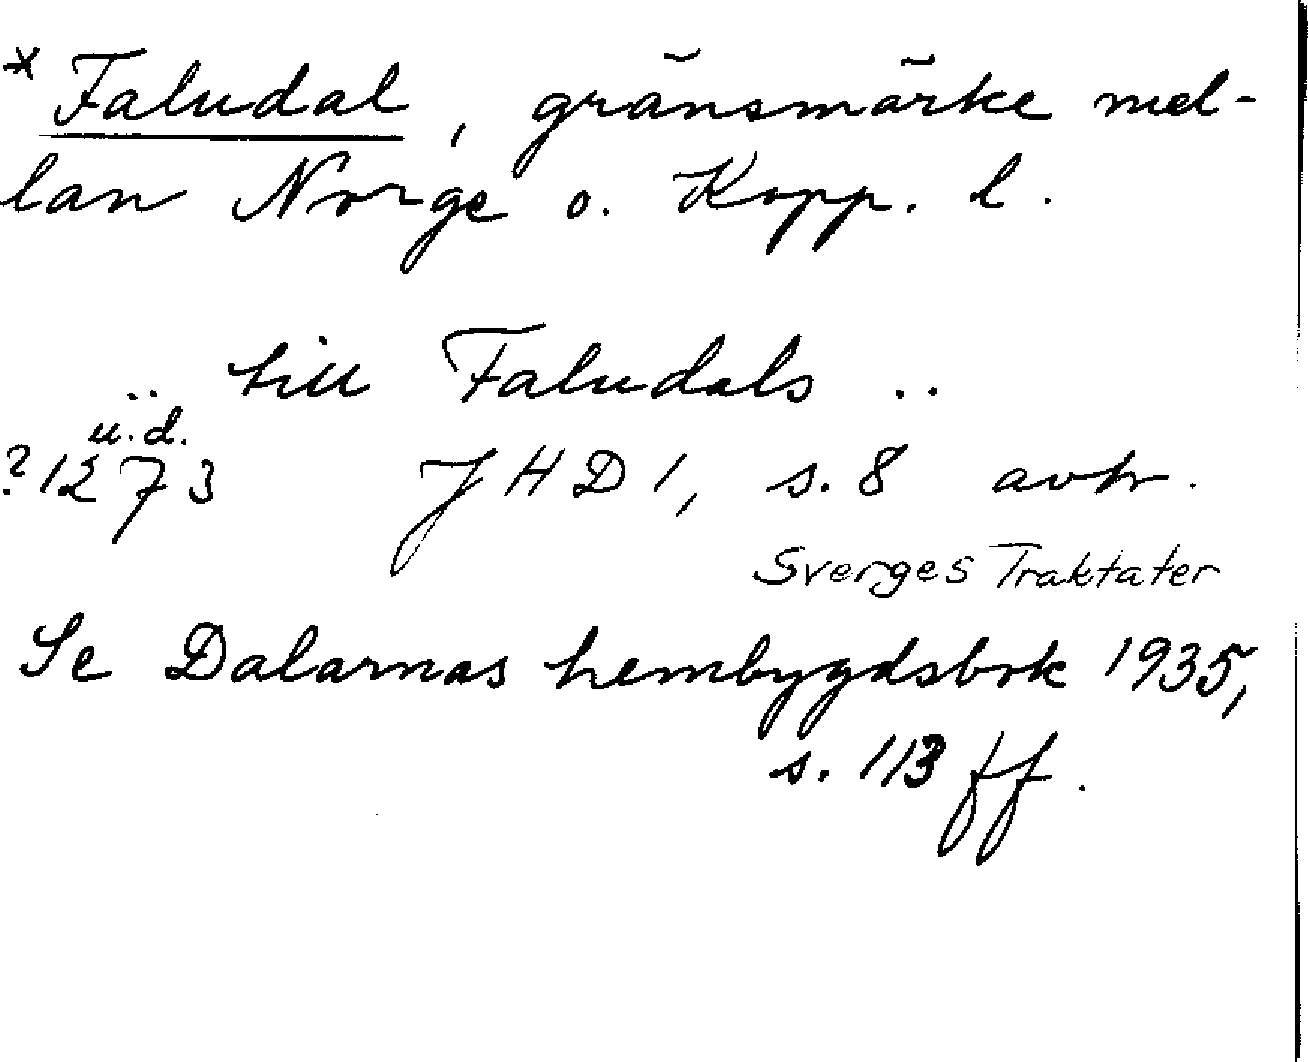 * Faludal, gränsmärke mel-
lan Norge o. Kopp. l.
.. till Faludals ..
u.d.
?1273 JHD 1, s. 8 avtr.
Sverges Traktater
Se Dalarnas hembygdsbok 1935,
s. 113 ff.